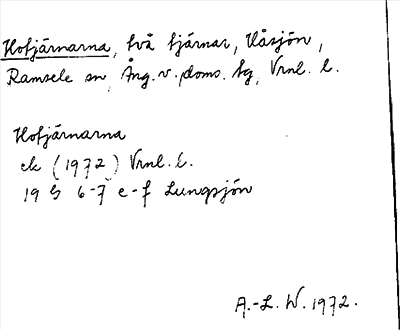 Hotjärnarna, två tjärnar, Våsjön,
Ramsele sn, Ång. v. doms. tg, Vrnl. l.
Hotjärnarna
ek (1972) Vrnl. l.
19 G 6-7 e-f Lungsjön
A.-L. W. 1972.